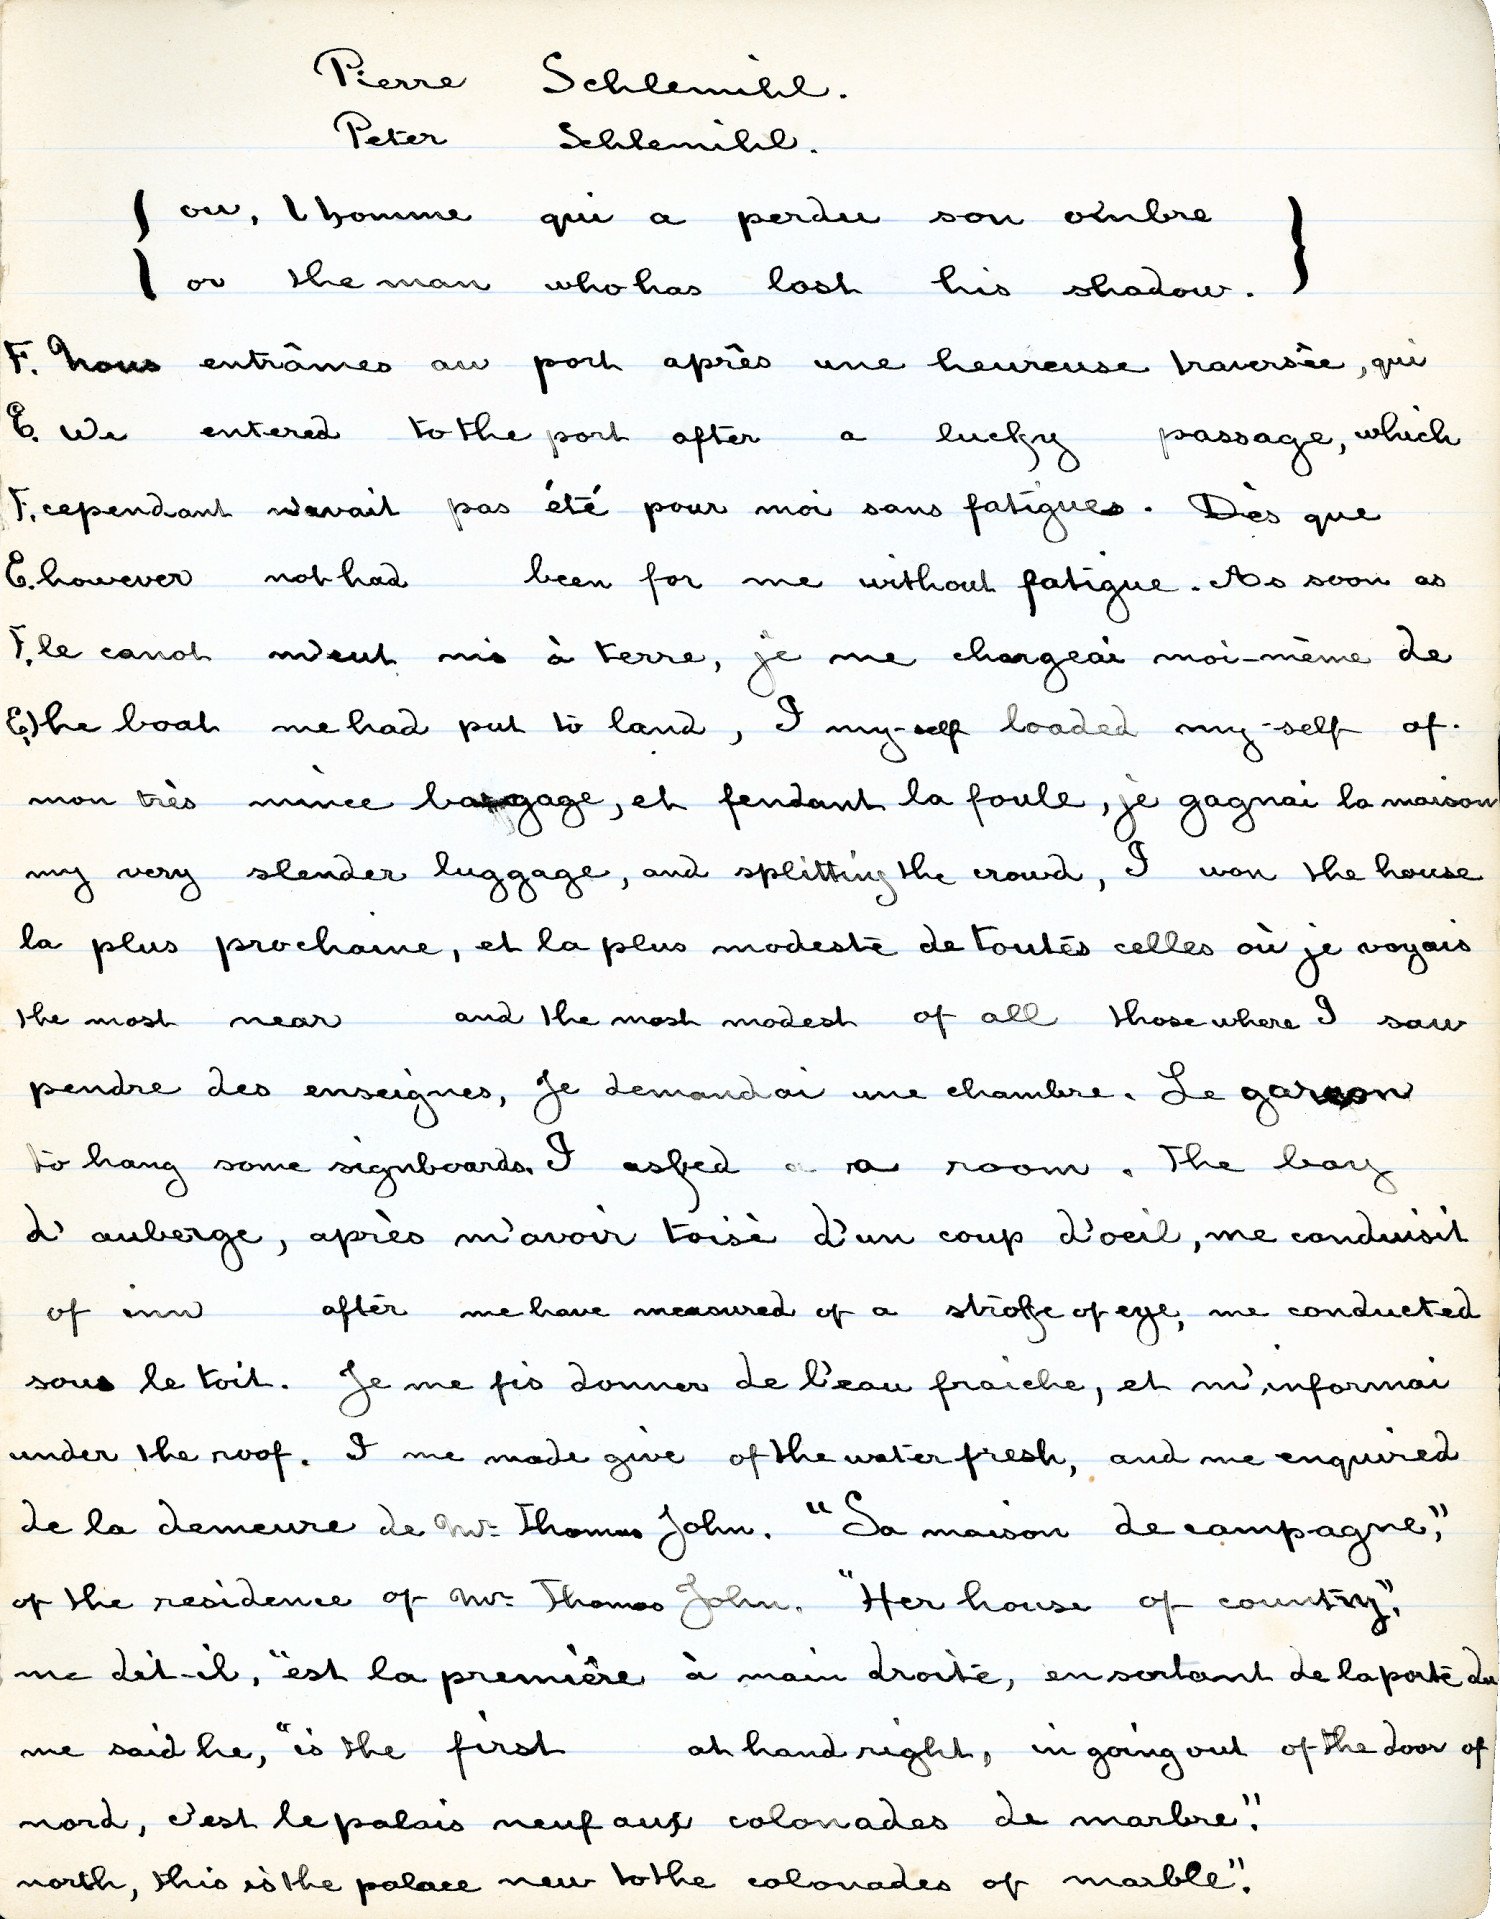 Pierre Schlemihl.
Peter Schlemihl.
ou, l'homme qui a perdu son ombre
or the man who has lost his shadow.
F. Nous entrâmes au port après une heureuse traversée, qui
E. We entered to the port after a lucky passage, which
F. cependant n'avait pas été pour moi sans fatigues. Dès que
E. however not had been for me without fatigue. As soon as
F. le canot m'eut mis à terre, je me chargeai moi-même de
E. the boat me had put to land, I my-self loaded my-self of.
mon très mince bagage, et fendant la foule, je gagnai la maison
my very slender luggage, and splitting the crowd, I won the house
la plus prochaine, et la plus modeste de toutes celles où je voyais
the most near and the most modest of all those where I saw
pendre des enseignes, Je demandai une chambre. Le garçon
to hang some signboards. I asked a room. The boy
d'auberge, après m'avoir toisé d'un coup d'oeil, me conduisit
of inn after me have measured of a stroke of eye, me conducted
sous le toit. Je me fis donner de l'eau fraiche, et m'informai
under the roof. I me made give of the water fresh, and me enquired
de la demeure de Mr. Thomas John. "Sa maison de campagne,"
of the residence of Mr. Thomas John. "Her house of country,"
me dit-il, "est la première à main droite, en sortant de la porte du
me said he, "is the first at hand right, in going out of the door of
nord, c'est le palais neuf aux colonades de marbre".
north, this is the palace new to the colonades of marble".